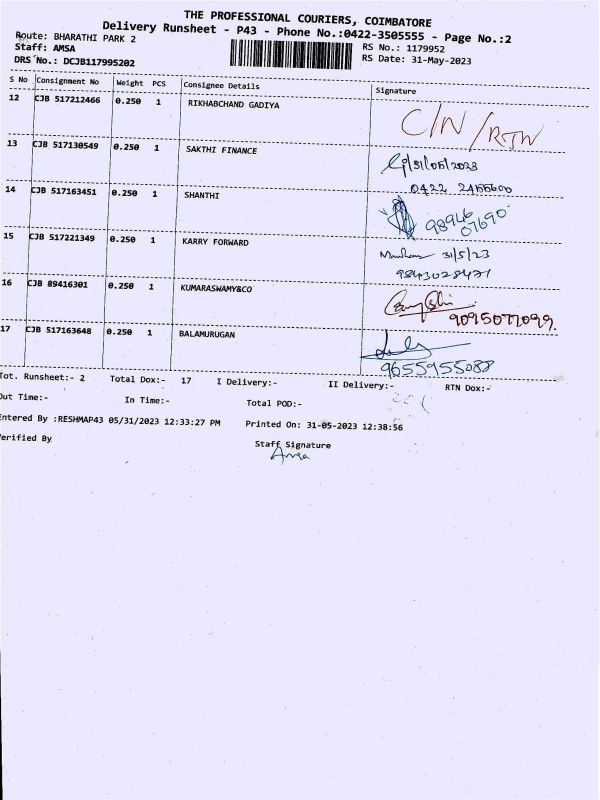 THE PROFESSIONAL COURIERS, COIMBATORE
Delivery Runsheet - P43 - Phone No.:0422-3505555 - Page No.:2
Route: BHARATHI PARK 2
RS No.: 1179952
Staff: AMSA
RS Date: 31-May-2023
DRS No.: DCJB117995202
S No Consignment No Weight PCS Consignee Details Signature
12 CJB 517212466 0.250 1 RIKHABCHAND GADIYA C/N/RTN
13 CJB 517130549 0.250 1 SAKTHI FINANCE 31/05/2023
0422 2455600
14 CJB 517163451 0.250 1 SHANTHI 98946
07690
15 CJB 517221349 0.250 1 KARRY FORWARD 31/5/23
9843028471
16 CJB 89416301 0.250 1 KUMARASWAMY&CO
9095077099.
17 CJB 517163648 0.250 1 BALAMURUGAN
9655955088
Tot. Runsheet:- 2 Total Dox:- 17 I Delivery:- II Delivery:- RTN Dox:-
Out Time:- In Time:- Total POD:-
Entered By :RESHMAP43 05/31/2023 12:33:27 PM Printed On: 31-05-2023 12:38:56
Verified By Staff Signature
Amsa